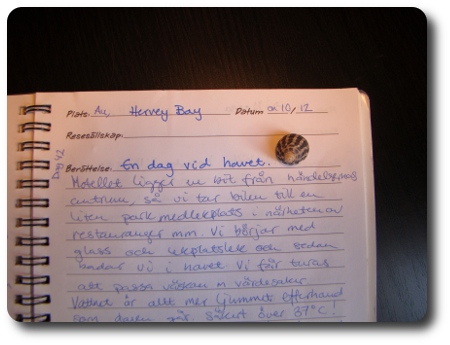 Plats: Au, Hervey Bay Datum on 10/12
Resesällskap:
Dag 42
Berättelse: En dag vid havet.
Hotellet ligger en bit från händelsernas
centrum, så vi tar bilen till en
liten park med lekplats i närheten av
restauranger mm. Vi börjar med
glass och lekplatslek och sedan
badar vi i havet. Vi får turas
att passa väskan m värdesaker.
Vattnet är allt mer ljummet efterhand
som dagen går. Säkert över 37°C!